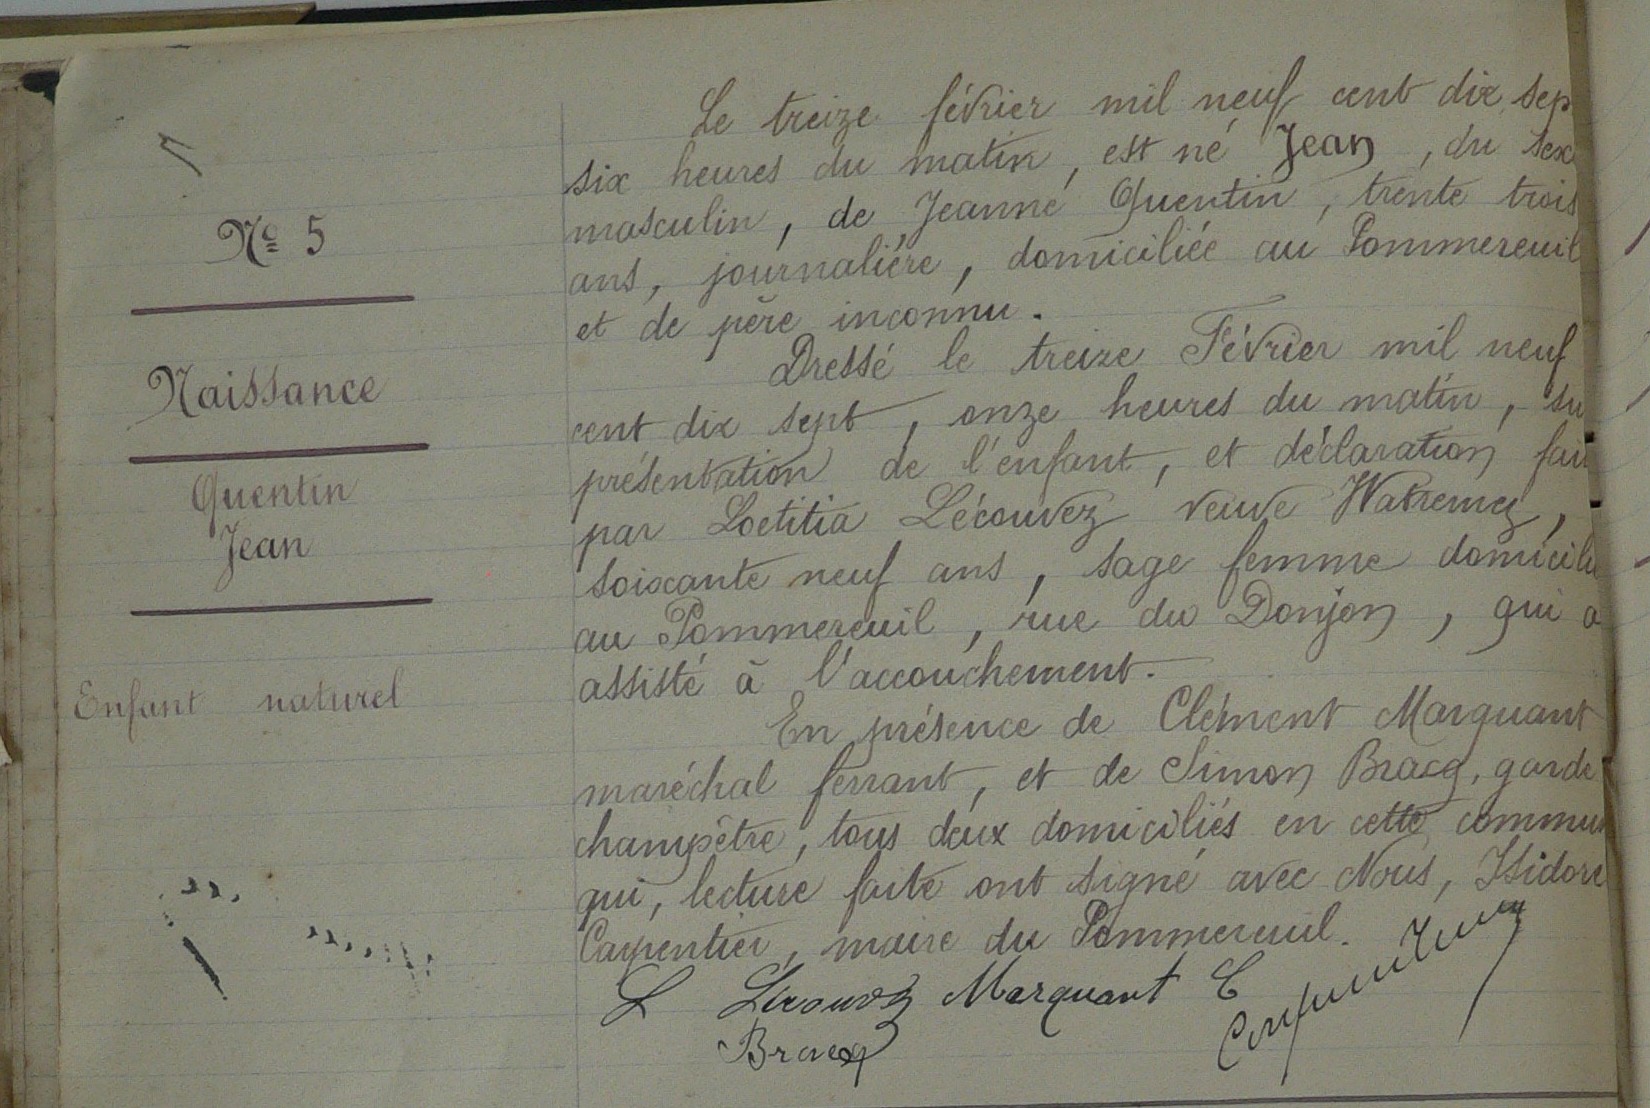 Nº 5
Naissance
Quentin
Jean
Enfant naturel
Le treize février mil neuf cent dix sep
six heures du matin, est né Jean, du sex
masculin, de Jeanne Quentin, trente trois
ans, journalière, domiciliée au Pommereuil
et de père inconnu.
Dressé le treize Février mil neuf
cent dix sept, onze heures du matin, su
présentation de l'enfant, et déclaration fai
par Loetitia Lécouvez veuve Watremez,
soixante neuf ans, sage femme domicili
au Pommereuil, rue du Donjon, qui a
assisté à l'accouchement.
En présence de Clément Marquant
maréchal ferrant, et de Simon Bracq, garde
champêtre, tous deux domiciliés en cette commun
qui, lecture faite ont signé avec Nous, Isidore
Carpentier, maire du Pommereuil.
L Lécouvez Marquant C
Bracq